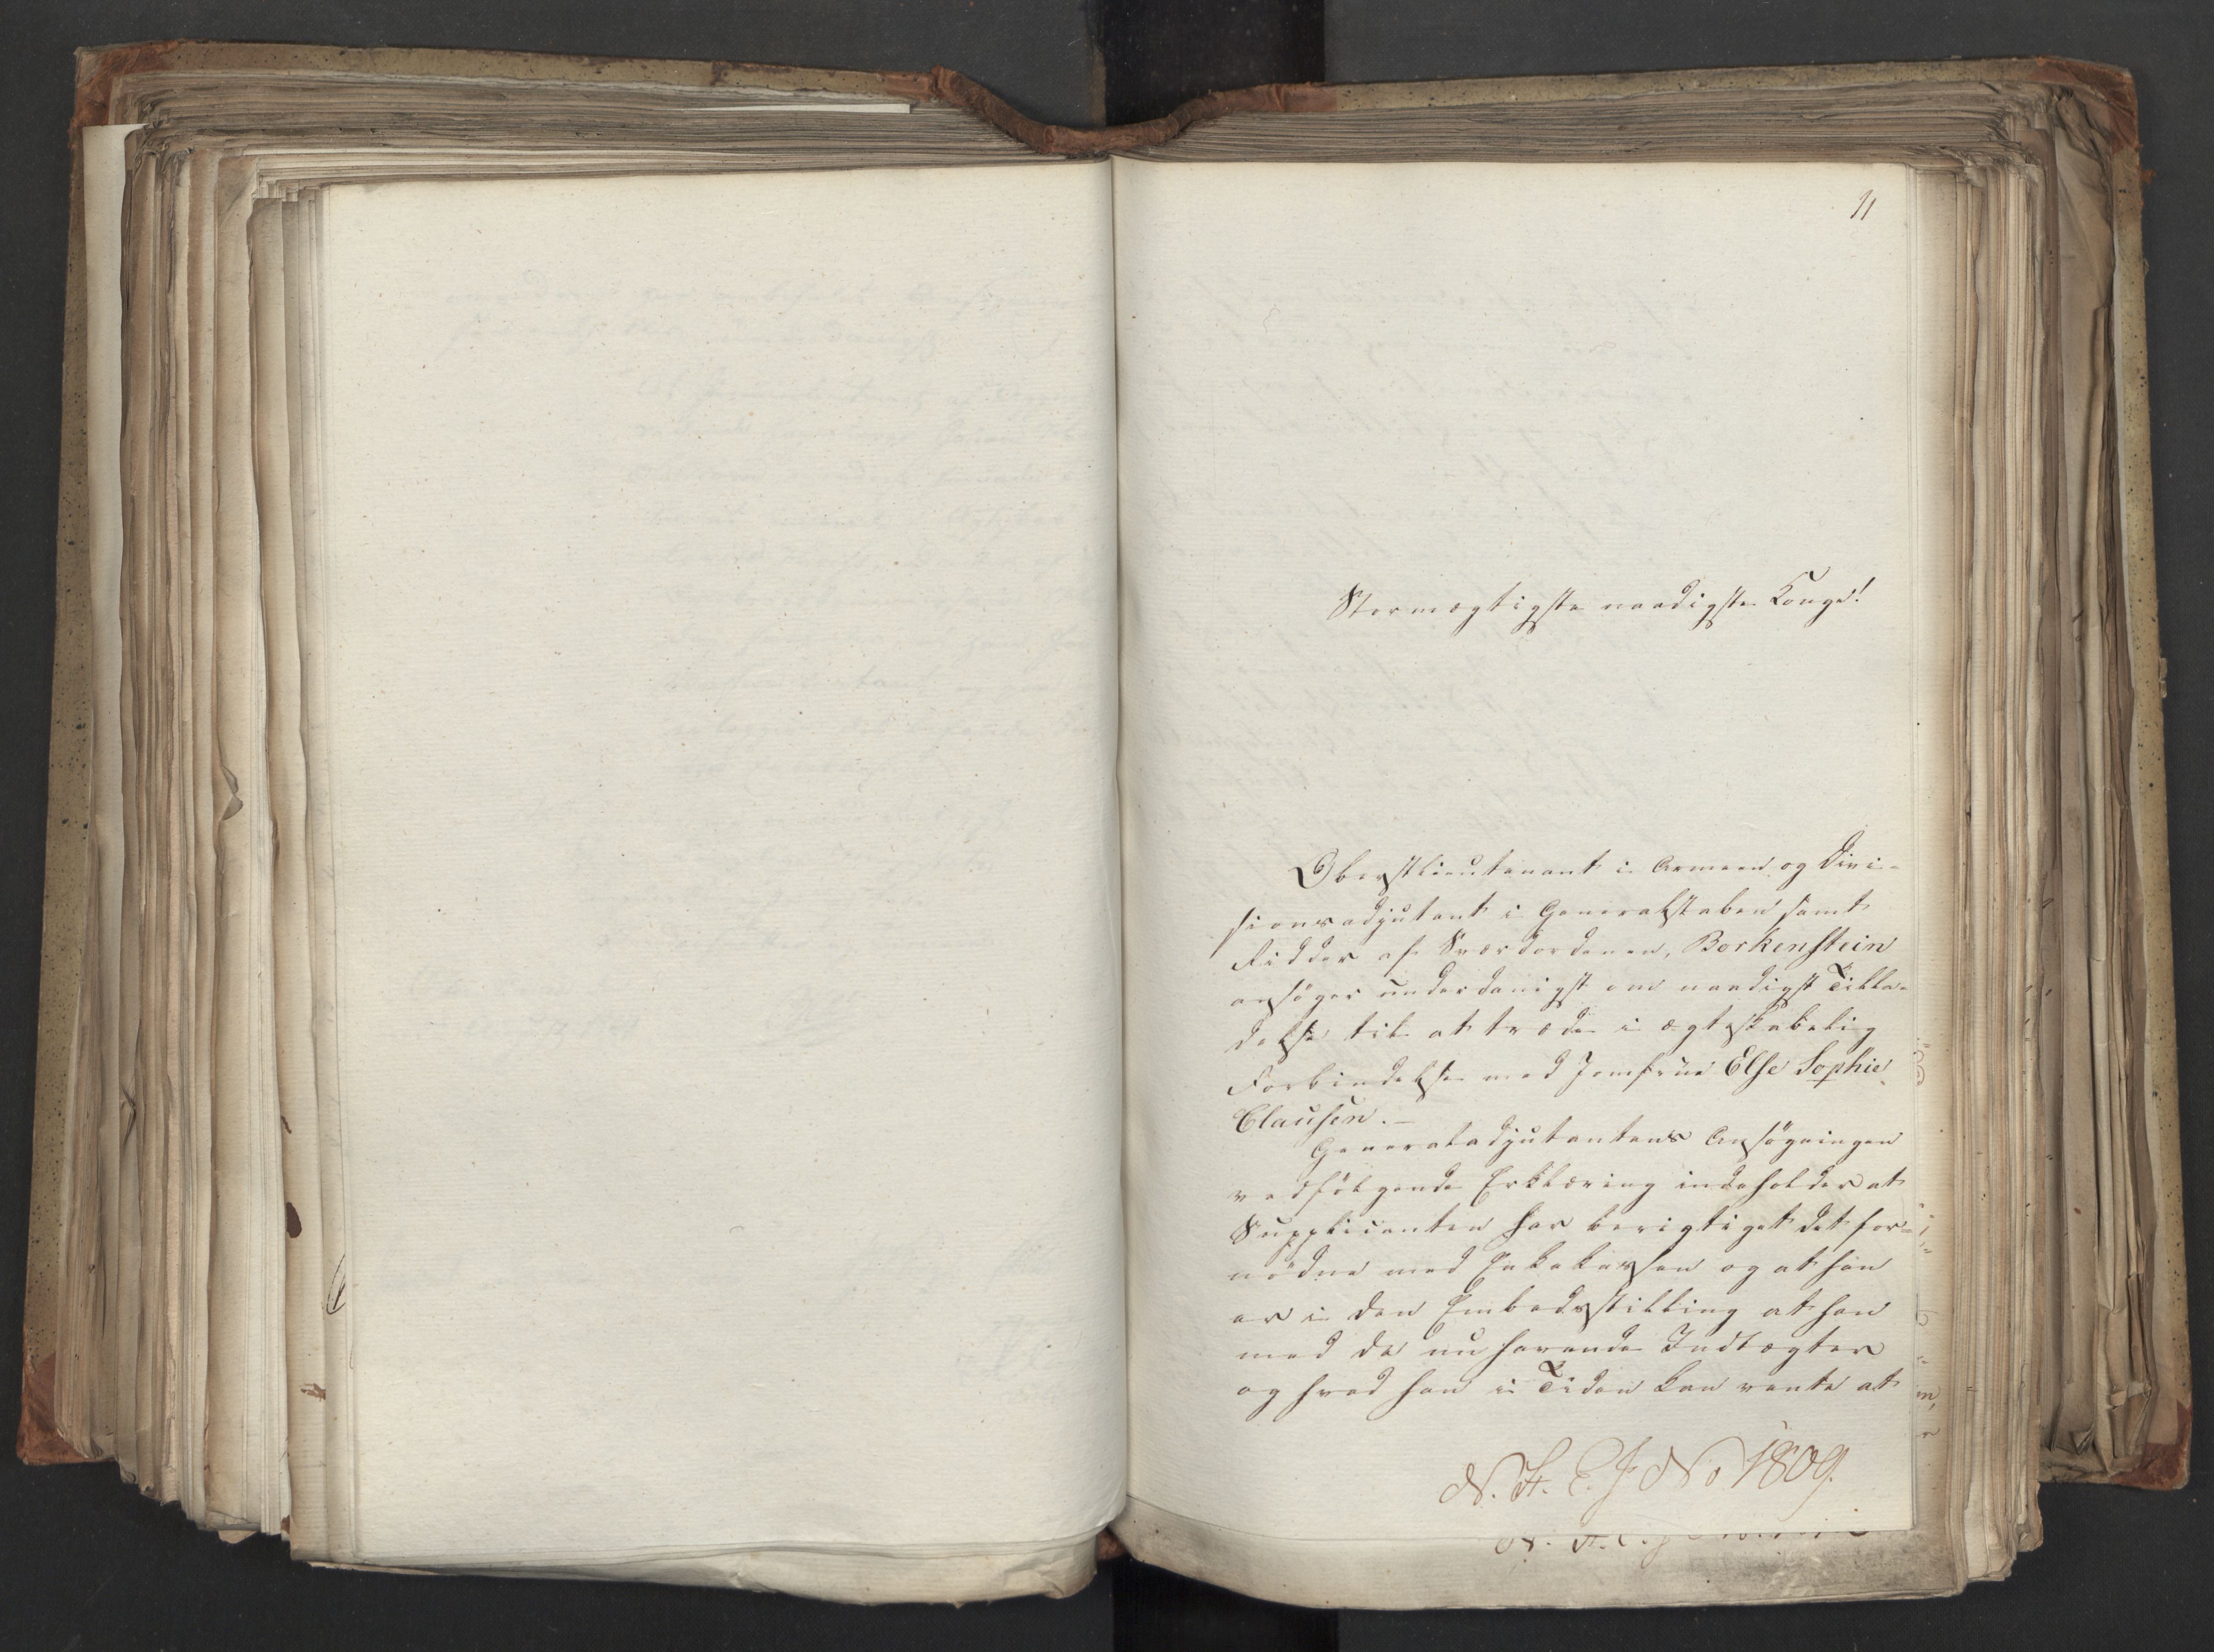 11
Stormægtigste naadigste Konge!
Oberstlieutenant i Armeen og Divi-
sionsadjutant i Generalstaben samt
Ridder af Sværdordenen, Borkenstein
ansøger underdanigst om naadigst Tilla-
delse til at træde i ægteskabelig
Forbindelse med Jomfrue Else Sophie
Clausen. —
Generaladjutantens Ansøgningen
vedfølgende Erklæring indeholder at
Supplicanten har berigtiget det for-
nødne med Enkekassen og at han
er i den Embedsstilling at han
med de nu havende Indtægter
og hvad han i Tiden kan vente at
N. H. E. J No 1809.